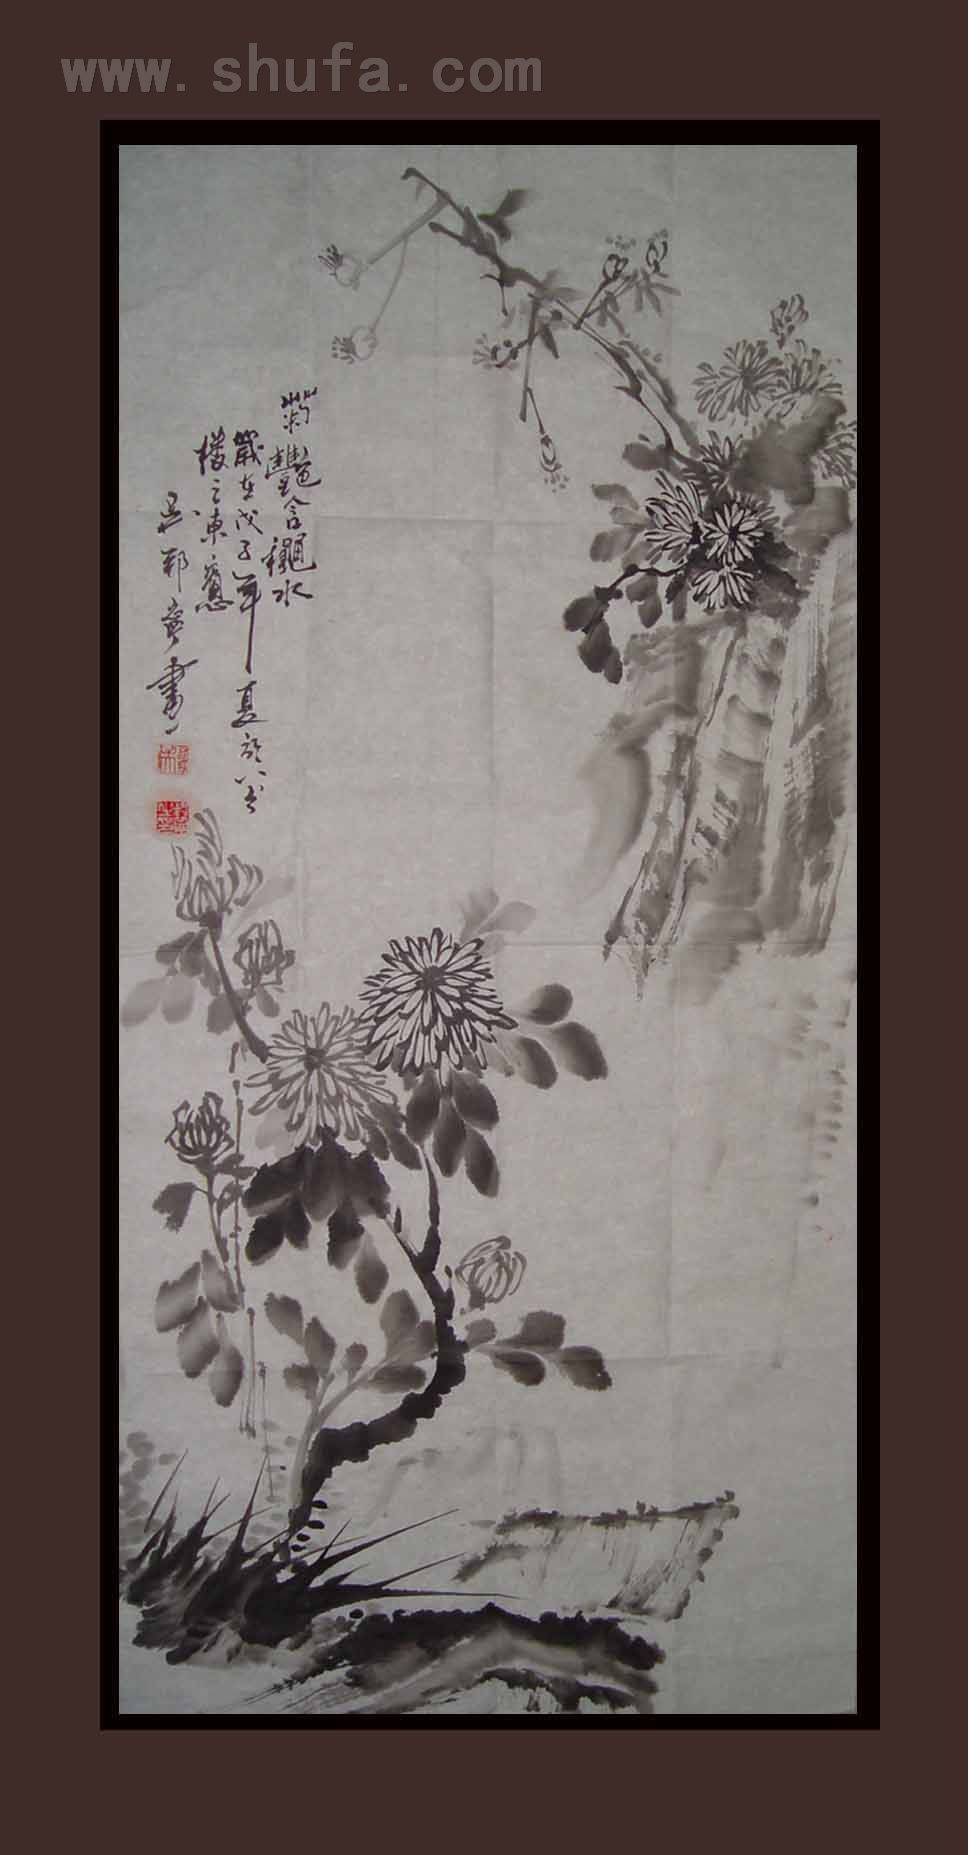 www.shufa.com
菊艷含穐水
歲在戊子年夏於八弓
樓之東窗
吳邦彥畫